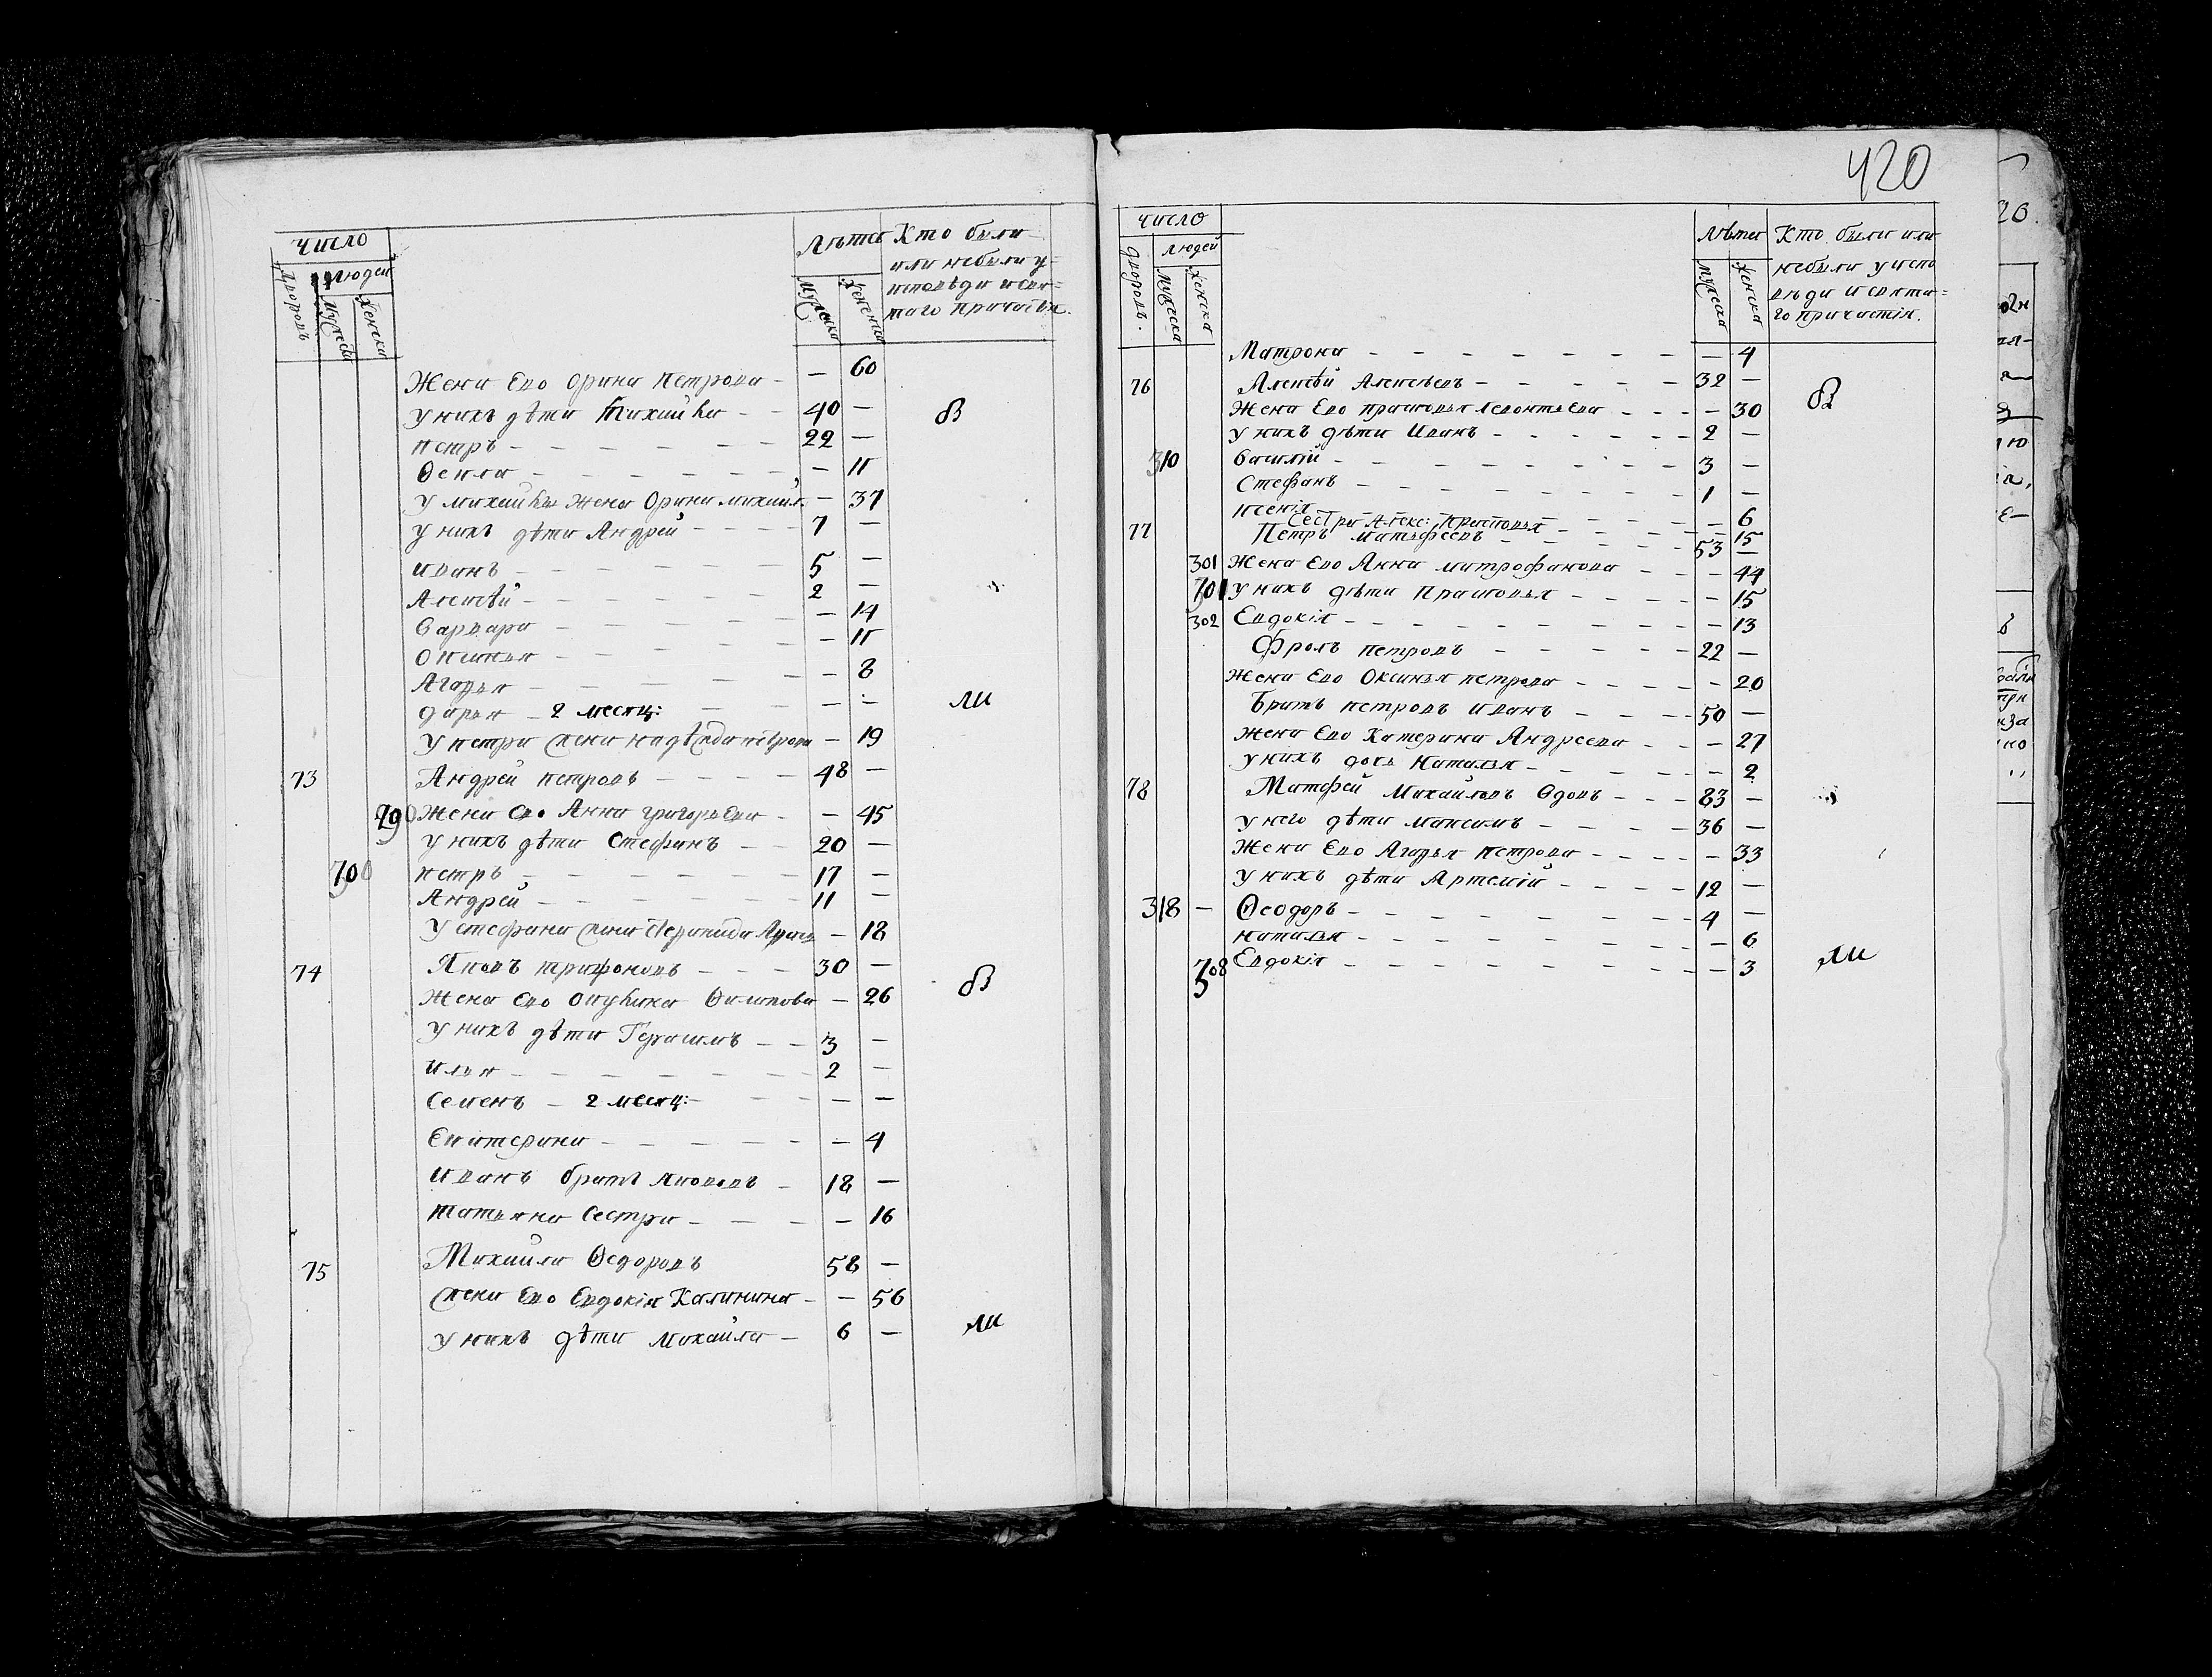 420
Число
Лѣта
Кто были
Дворовъ
Людей
или небыли у
Мужеска
Женска
исповѣди и свя=
таго причастія.
Жена Ево Орина Петрова - — 60
у нихъ дѣти Михайла - - 40 —
Петръ - - - - 22 —
Ѳекла - - - - — 11
у Михайлы Жена Орина Михаил. — 37
у нихъ дѣти Андрей - - 7 —
Иванъ - - - - 5 —
Алексѣй - - - - 2 —
Варвара - - - - — 14
Оксинья - - - - — 11
Агафья - - - - — 8
Дарья - 2 месяц: - — —
у Петра жена Надѣжда Петрова — 19
73 Андрей Петровъ - - - 48 —
290 Жена Ево Анна Григорьева - — 45
у нихъ дѣти Стефанъ - - 20 —
300 Петръ - - - - 17 —
Андрей - - - - 11 —
у Стефана жена — 18
74 Яковъ Трифоновъ - - - 30 —
Жена Ево Акулина Филипова — 26
у нихъ дѣти Герасимъ - - 3 —
Илья - - - - 2 —
Семенъ - 2 месяц: - — —
Екатерина - - - - — 4
Иванъ братъ Яковлевъ - 18 —
Татьяна Сестра - - - — 16
75 Михайла Ѳедоровъ 58 —
Жена Ево Евдокія Калинина - — 56
у нихъ дѣти Михайла - 6 —
Число
Лѣта
Кто были или
Дворовъ.
Людей
небыли у испо
Мужеска
Женска
вѣди и свята=
го причастія.
Матрона - - - - — 4
76 Алексѣй Алексѣевъ - - - 32 —
Жена Ево Прасковья Леонтьева - - — 30
у нихъ дѣти Иванъ - - - 2 —
310 Василій - - - - 3 —
Стефанъ - - - - 1 —
Ксенія - - - - — 6
Сестра Алекс: Прасковья - - — 15
77 Петръ Матвѣевъ - - - 53 —
301 Жена Ево Анна Митрофанова - - — 44
301 у нихъ дѣти Прасковья - - - — 15
302 Евдокія - - - - — 13
Фролъ Петровъ - - - 22 —
Жена Ево Оксинья Петрова - - - — 20
Братъ Петровъ Иванъ - - - 50 —
Жена Ево Катерина Андреева - - — 27
у нихъ дочь Наталья - - - — 2
78 Матфей Михайловъ Вдовъ - - 83 —
у него дѣти Максимъ - - - 36 —
Жена Ево Агафья Петрова - - - — 33
у нихъ дѣти Артемій - - - 12 —
318 — Ѳеодоръ - - - - 4 —
Наталья - - - - — 6
308 Евдокія - - - - — 3